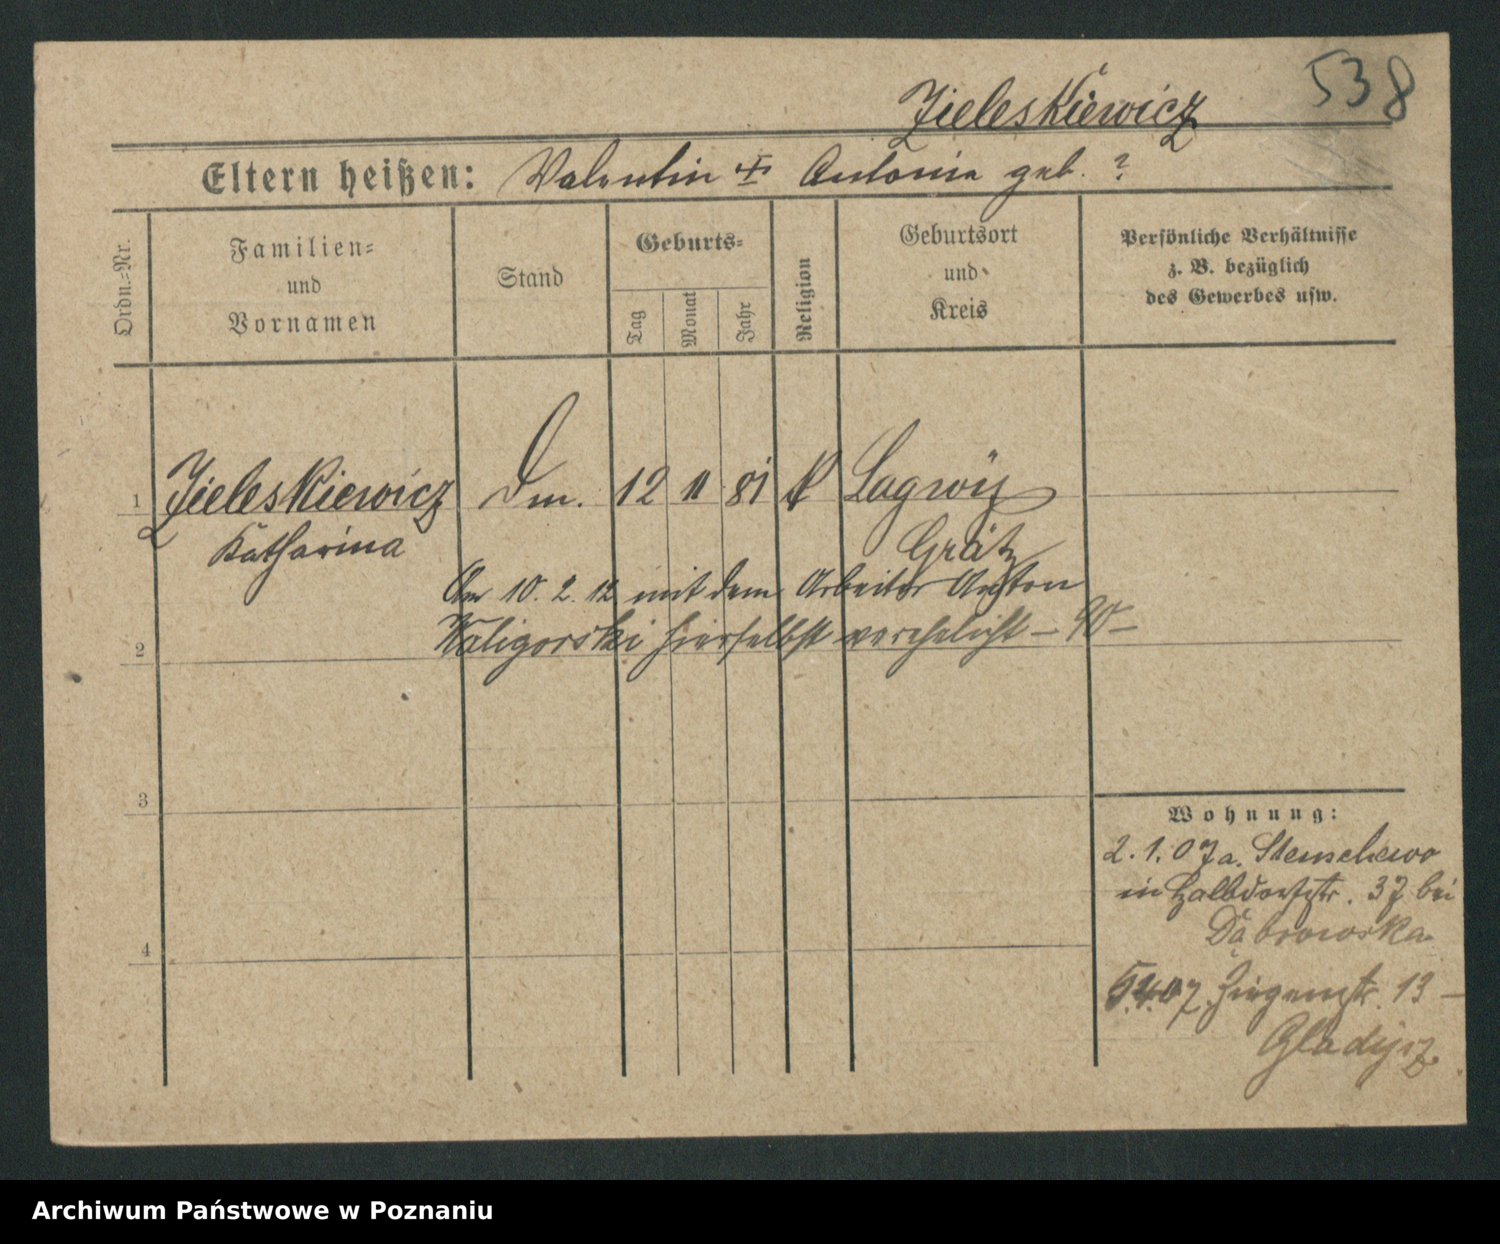 538
Zieleskiewicz
Eltern heißen: Valentin Antonie geb. ?
Ordn.-Nr.
Familien-
und
Vornamen
Stand
Geburts-
Tag
Monat
Jahr
Religion
Geburtsort
und
Kreis
Persönliche Verhältnisse
z. B. bezüglich
des Gewerbes usw.
1 Zieleskiewicz Dm. 12 11 81 k Lagwÿ
Katharina Grätz
Am 10. 2. 12 mit dem Arbeiter Anton
Waligorski hierselbst verehelicht –
2
3
4
Wohnung:
2. 1. 07 a. Stenschewo
in Halbdorfstr. 37 bei
Dąbrowska
5.4.07 Ziegenstr. 13 –
Gladysz
Archiwum Państwowe w Poznaniu